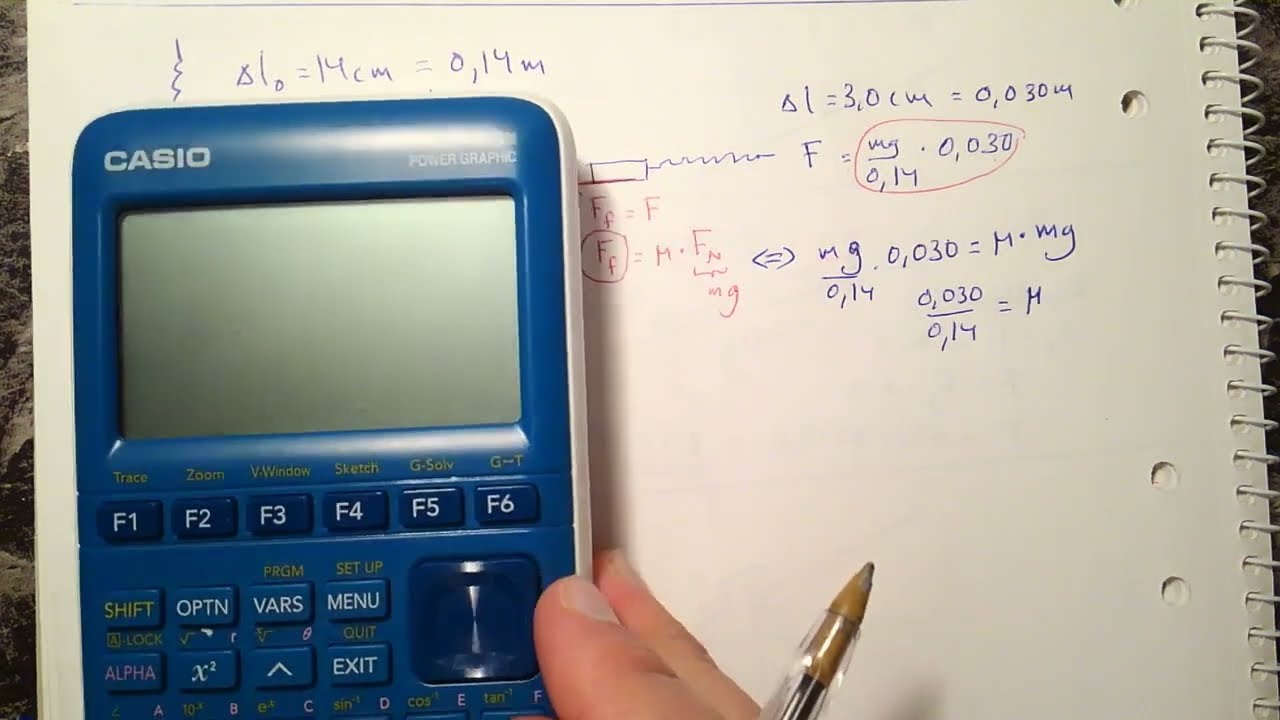 Δl₀ = 14 cm = 0,14 m
Δl = 3,0 cm = 0,030 m
F = mg/0,14 · 0,030
F_f = F
F_f = μ · F_N
mg
⇔ mg/0,14 · 0,030 = μ · mg
0,030/0,14 = μ
CASIO POWER GRAPHIC
Trace Zoom V-Window Sketch G-Solv G↔T
F1 F2 F3 F4 F5 F6
PRGM SET UP
SHIFT OPTN VARS MENU
A-LOCK √ r θ QUIT
ALPHA x² ^ EXIT
∠ A 10ˣ B eˣ C sin⁻¹ D cos⁻¹ E tan⁻¹ F